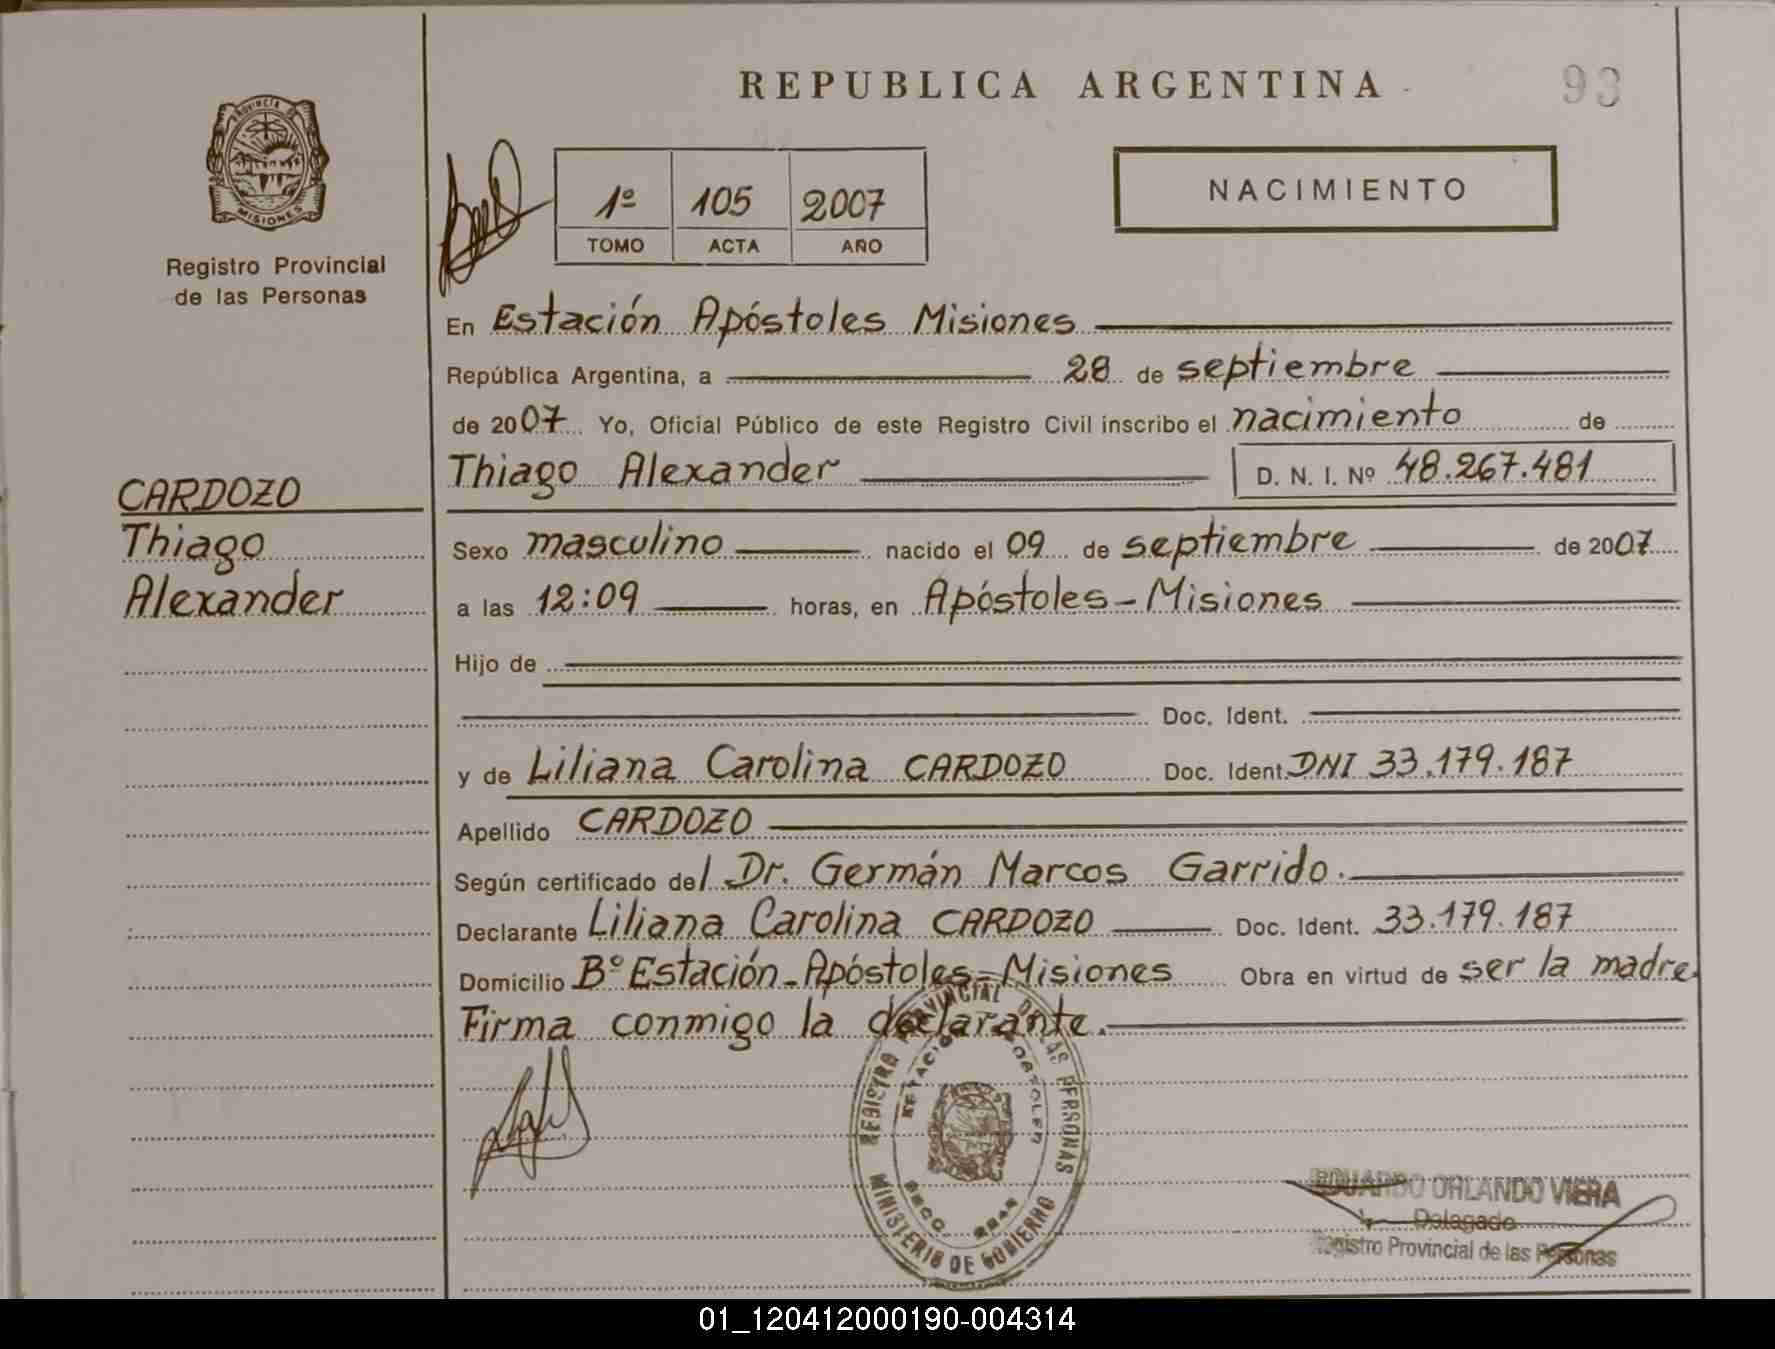 REPUBLICA ARGENTINA
93
PROVINCIA DE
MISIONES
Registro Provincial
de las Personas
1º 105 2007
TOMO ACTA AÑO
NACIMIENTO
En Estación Apóstoles Misiones
República Argentina, a 28 de septiembre
de 2007 Yo, Oficial Público de este Registro Civil inscribo el nacimiento de
Thiago Alexander D. N. I. Nº 48.267.481
CARDOZO
Thiago
Alexander
Sexo masculino nacido el 09 de septiembre de 2007
a las 12:09 horas, en Apóstoles - Misiones
Hijo de
Doc. Ident.
y de Liliana Carolina CARDOZO Doc. Ident. DNI 33.179.187
Apellido CARDOZO
Según certificado del Dr. Germán Marcos Garrido.
Declarante Liliana Carolina CARDOZO Doc. Ident. 33.179.187
Domicilio Bº Estación - Apóstoles - Misiones Obra en virtud de ser la madre
Firma conmigo la declarante.
REGISTRO PROVINCIAL DE LAS PERSONAS
MINISTERIO DE GOBIERNO
EDUARDO ORLANDO VIERA
Delegado
Registro Provincial de las Personas
01_120412000190-004314